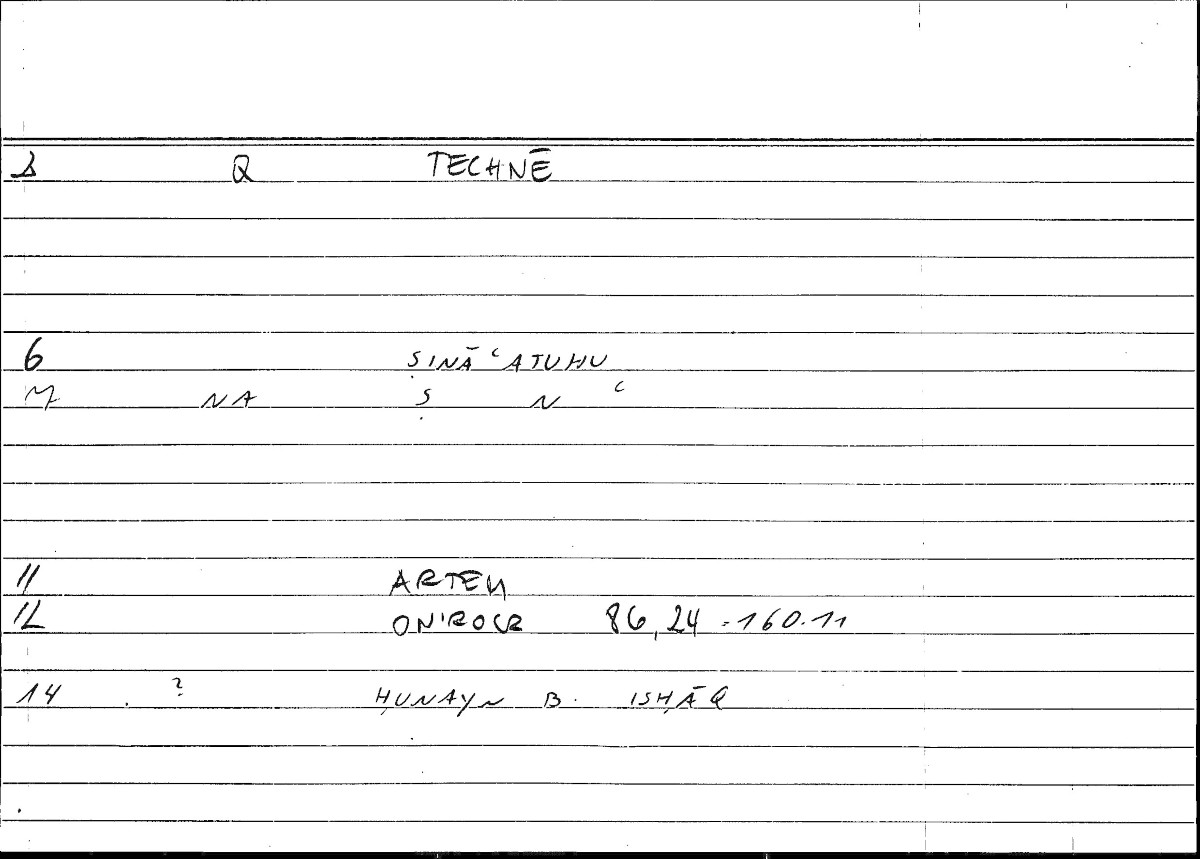 1 Q TECHNĒ
6 ṢINĀʿATUHU
7 NA Ṣ N ʿ
11 ARTEM
12 ONIROCR 86,24 - 160.11
14 . ? ḤUNAYN B. ISḤĀQ